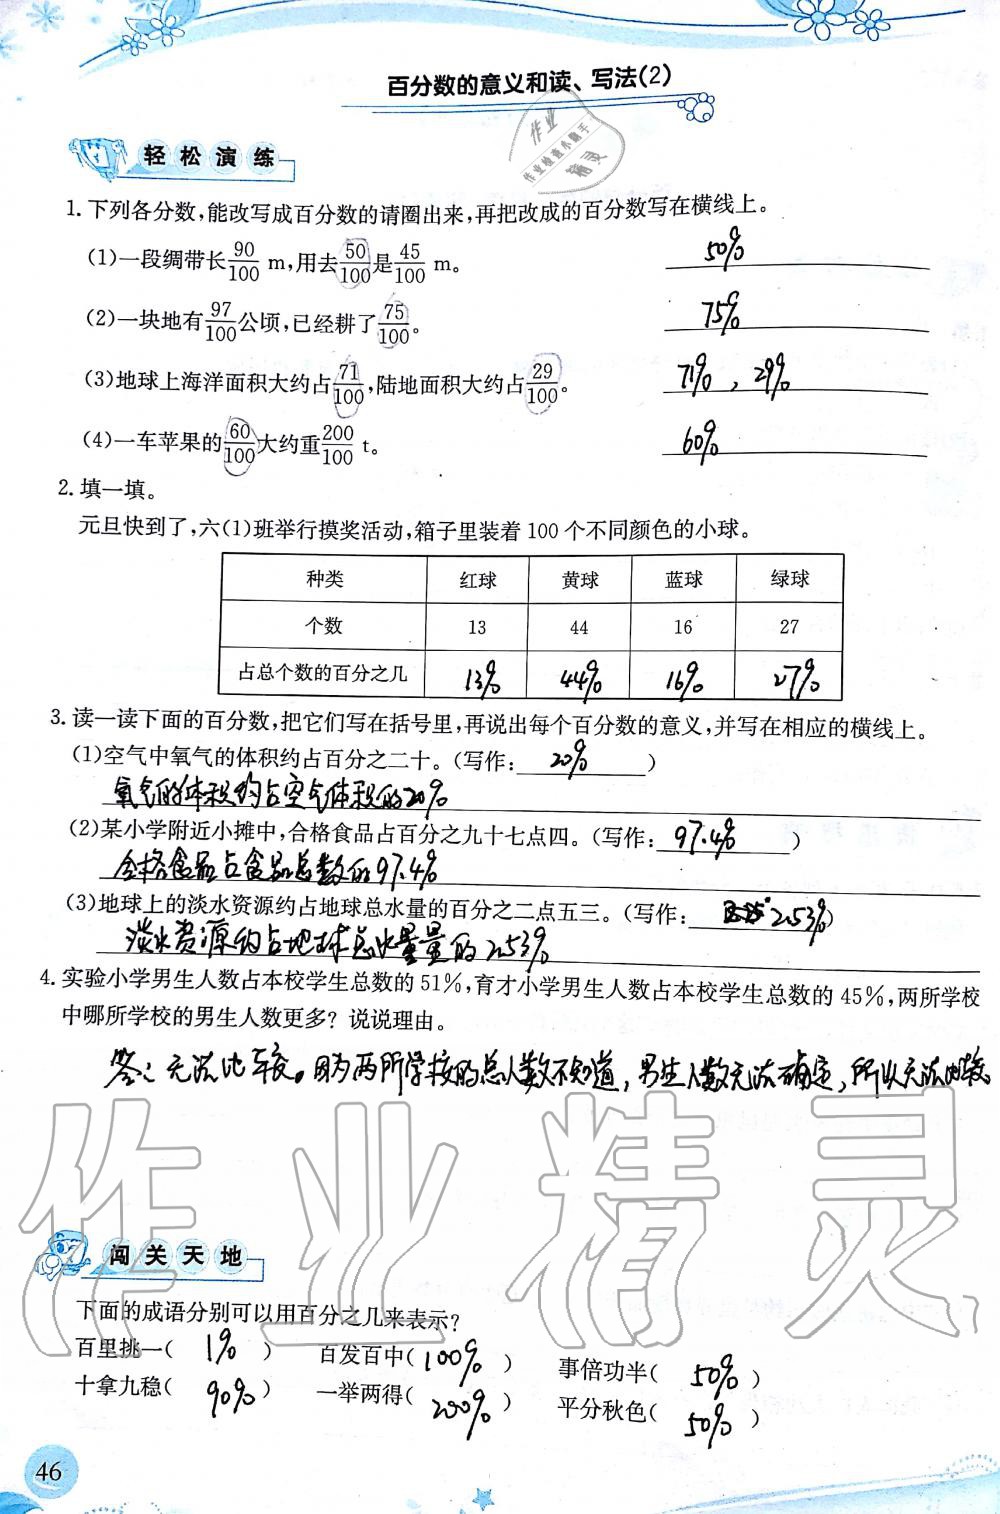 百分数的意义和读、写法(2)
作业
作业检查小助手
精灵
轻松演练
1.下列各分数,能改写成百分数的请圈出来,再把改成的百分数写在横线上。
(1)一段绸带长90/100 m,用去50/100是45/100 m。 50%
(2)一块地有97/100公顷,已经耕了75/100。 75%
(3)地球上海洋面积大约占71/100,陆地面积大约占29/100。 71%,29%
(4)一车苹果的60/100大约重200/100 t。 60%
2.填一填。
元旦快到了,六(1)班举行摸奖活动,箱子里装着100个不同颜色的小球。
种类 红球 黄球 蓝球 绿球
个数 13 44 16 27
占总个数的百分之几 13% 44% 16% 27%
3.读一读下面的百分数,把它们写在括号里,再说出每个百分数的意义,并写在相应的横线上。
(1)空气中氧气的体积约占百分之二十。(写作: 20% )
氧气的体积约占空气体积的20%
(2)某小学附近小摊中,合格食品占百分之九十七点四。(写作: 97.4% )
合格食品占食品总数的97.4%
(3)地球上的淡水资源约占地球总水量的百分之二点五三。(写作: 2.53%)
淡水资源约占地球总水量的2.53%
4.实验小学男生人数占本校学生总数的51%,育才小学男生人数占本校学生总数的45%,两所学校
中哪所学校的男生人数更多?说说理由。
答:无法比较。因为两所学校的总人数不知道,男生人数无法确定,所以无法比较
作业精灵
闯关天地
下面的成语分别可以用百分之几来表示?
百里挑一( 1% ) 百发百中( 100% ) 事倍功半( 50% )
十拿九稳( 90% ) 一举两得( 200% ) 平分秋色( 50% )
46